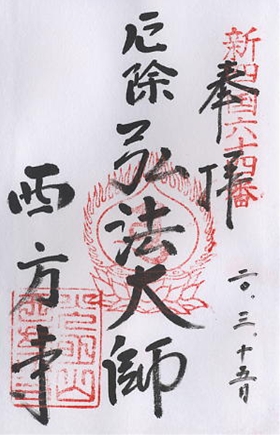 新四国六十四番
奉拝
二〇、三、十五日
厄除弘法大師
西方寺